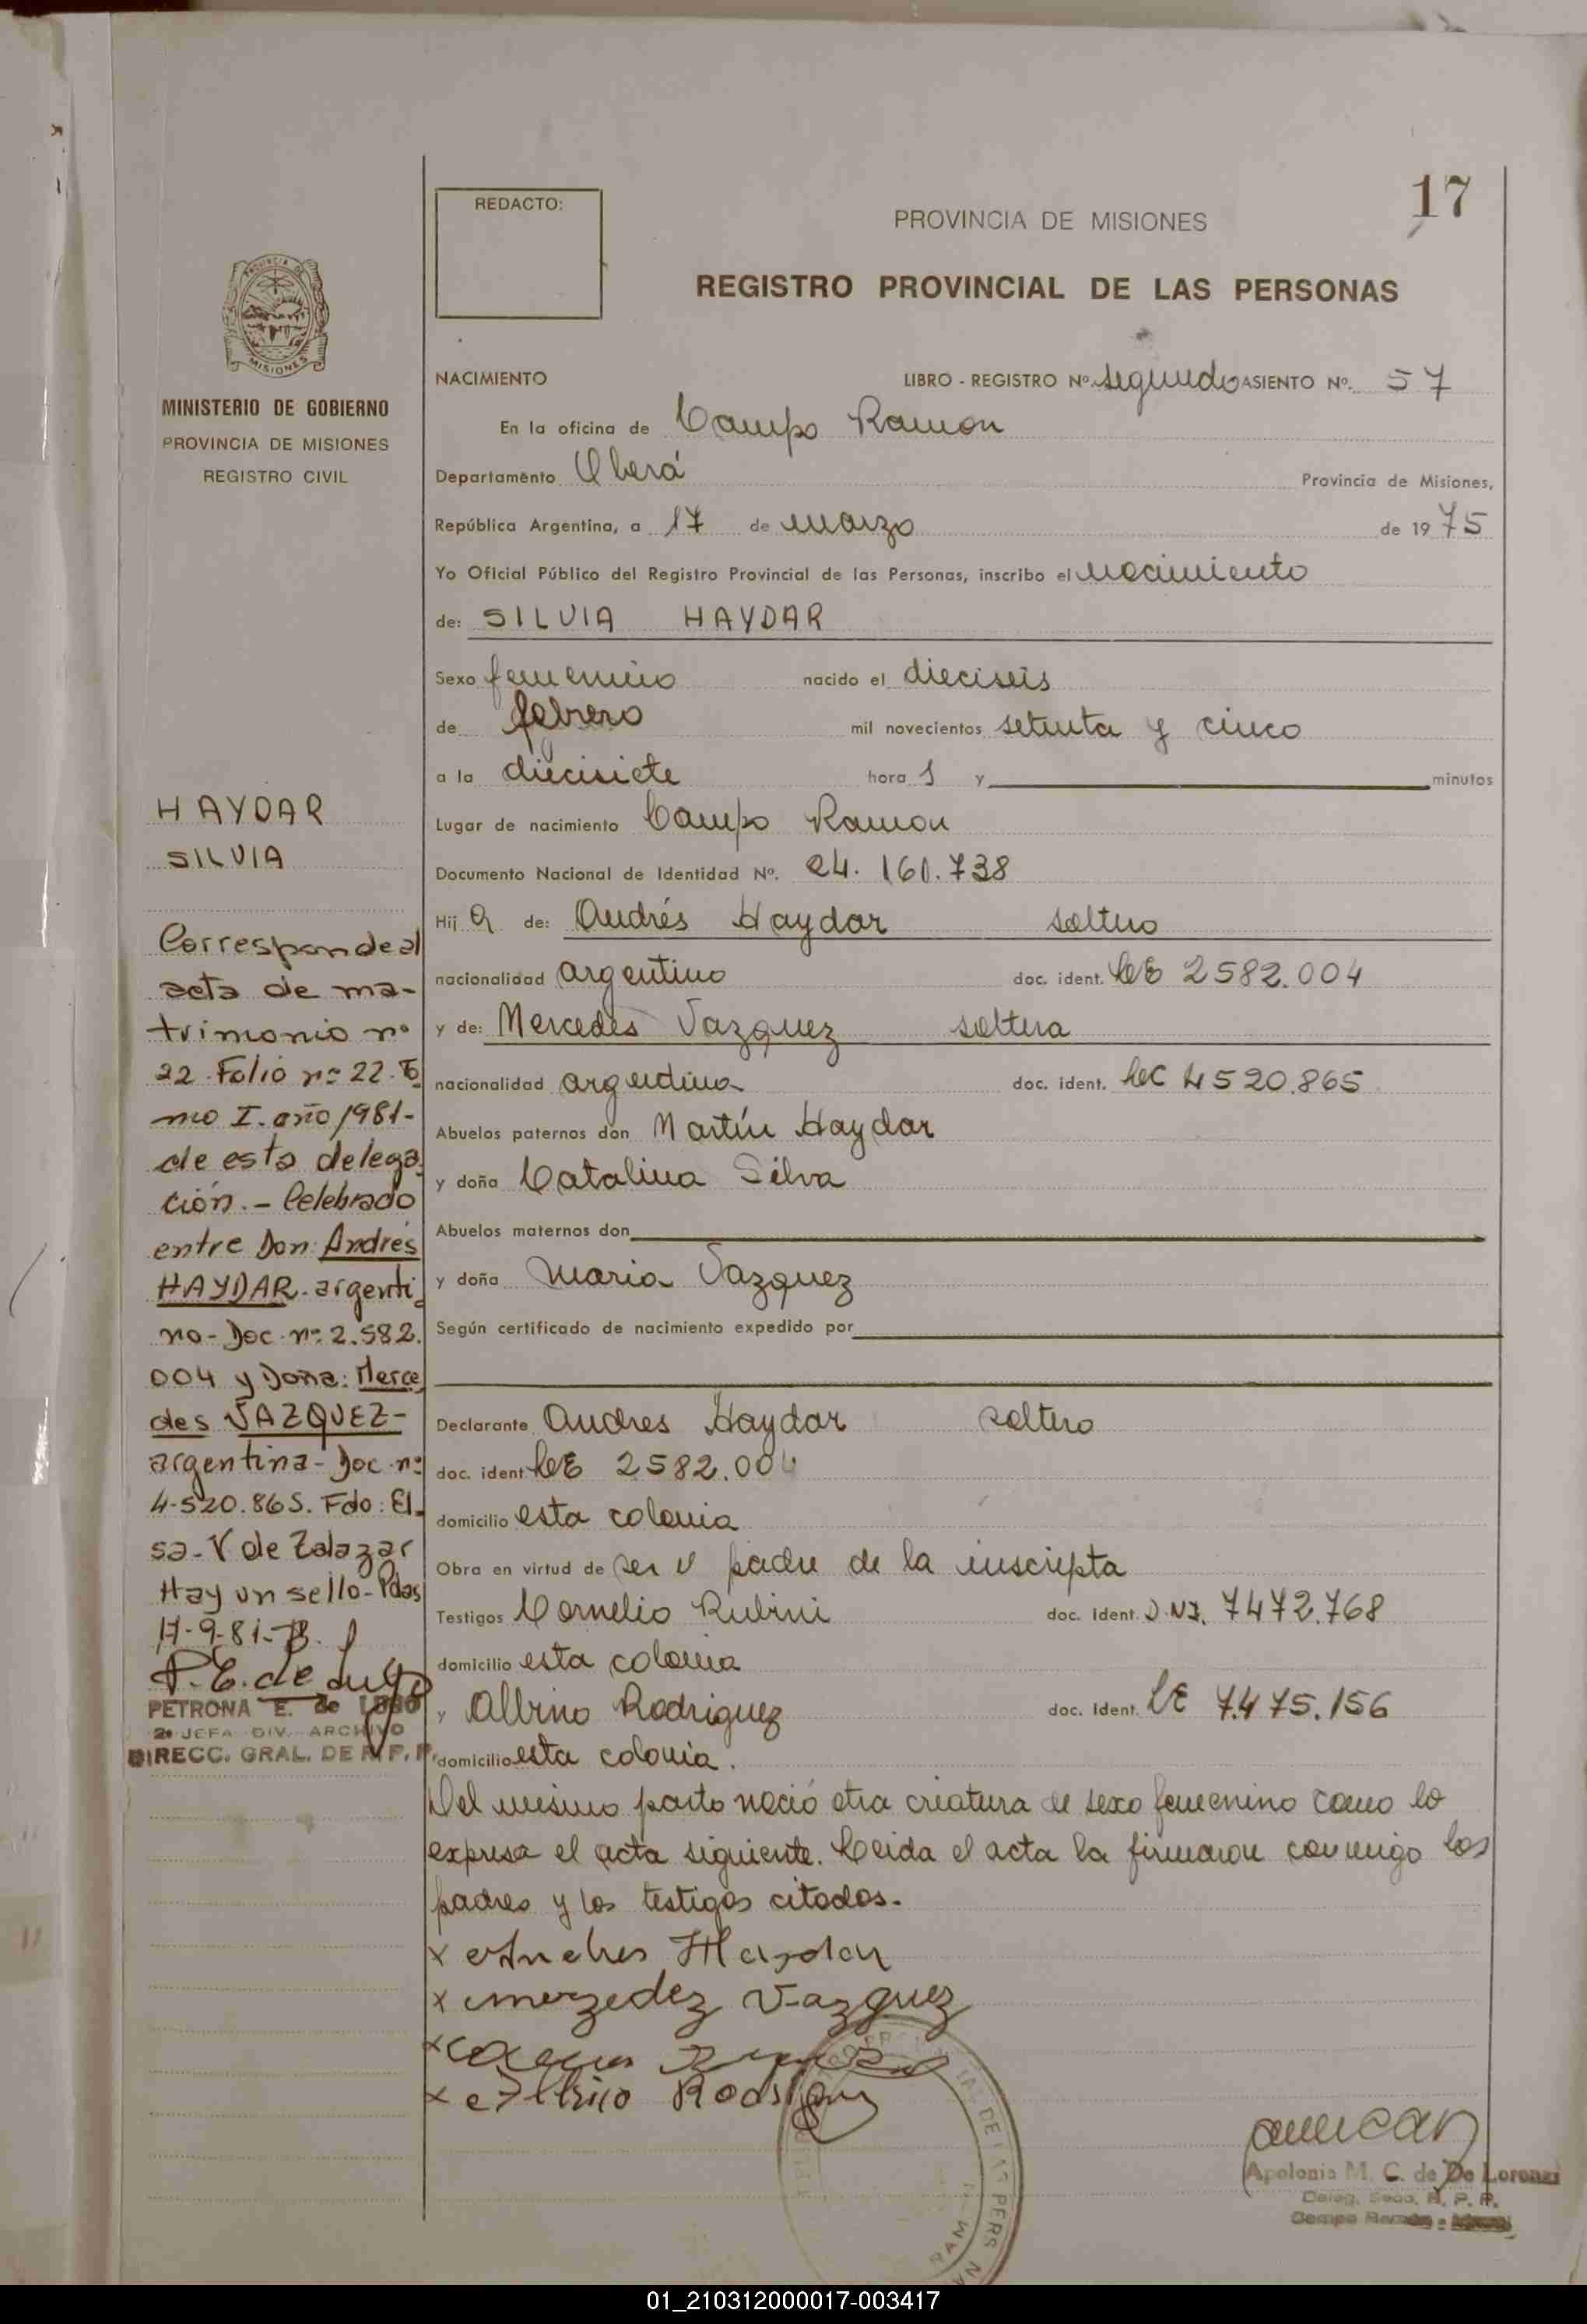 17
REDACTO:
PROVINCIA DE MISIONES
REGISTRO PROVINCIAL DE LAS PERSONAS
MINISTERIO DE GOBIERNO
PROVINCIA DE MISIONES
REGISTRO CIVIL
NACIMIENTO LIBRO - REGISTRO Nº. segundo ASIENTO Nº. 57
En la oficina de Campo Ramon
Departamento Oberá Provincia de Misiones,
República Argentina, a 17 de marzo de 1975
Yo Oficial Público del Registro Provincial de las Personas, inscribo el nacimiento
de: SILVIA HAYDAR
Sexo femenino nacido el dieciseis
de febrero mil novecientos setenta y cinco
a la diecisiete hora s y minutos
Lugar de nacimiento Campo Ramon
Documento Nacional de Identidad Nº. 24.160.738
Hij a de: Andrés Haydar soltero
nacionalidad argentino doc. ident. LE 2582.004
y de: Mercedes Vazquez soltera
nacionalidad argentina doc. ident. LC 4520.865
Abuelos paternos don Martín Haydar
y doña Catalina Silva
Abuelos maternos don
y doña Maria Vazquez
Según certificado de nacimiento expedido por
Declarante Andres Haydar soltero
doc. ident LE 2582.004
domicilio esta colonia
Obra en virtud de ser el padre de la inscripta
Testigos Cornelio Rubini doc. ident. D.NI. 7472.768
domicilio esta colonia
y Albino Rodriguez doc. ident. LE 7.475.156
domicilio esta colonia.
Del mismo parto nació otra criatura de sexo femenino como lo
expresa el acta siguiente. Leida el acta la firmaron conmigo los
padres y los testigos citados.
x Andres Haydar
x merzedez Vazquez
x Albino Rodriguez
HAYDAR
SILVIA
Corresponde al
acta de ma-
trimonio nº
22 Folio nº 22. To
mo I. año 1981-
de esta delega
ción. - Celebrado
entre Don: Andrés
HAYDAR. argenti
no - Doc. nº 2.582.
004 y Doña: Merce
des VAZQUEZ -
argentina - Doc. nº
4.520.865. Fdo: El
sa. V de Zalazar
Hay un sello - Pdas
17-9-81-
P.E. de Lugo
PETRONA E. de LUGO
2ª JEFA DIV. ARCHIVO
DIRECC. GRAL. DE R. P. P.
Apolonia M. C. de De Lorenzi
Deleg. Secc. R. P. P.
Campo Ramón
01_210312000017-003417